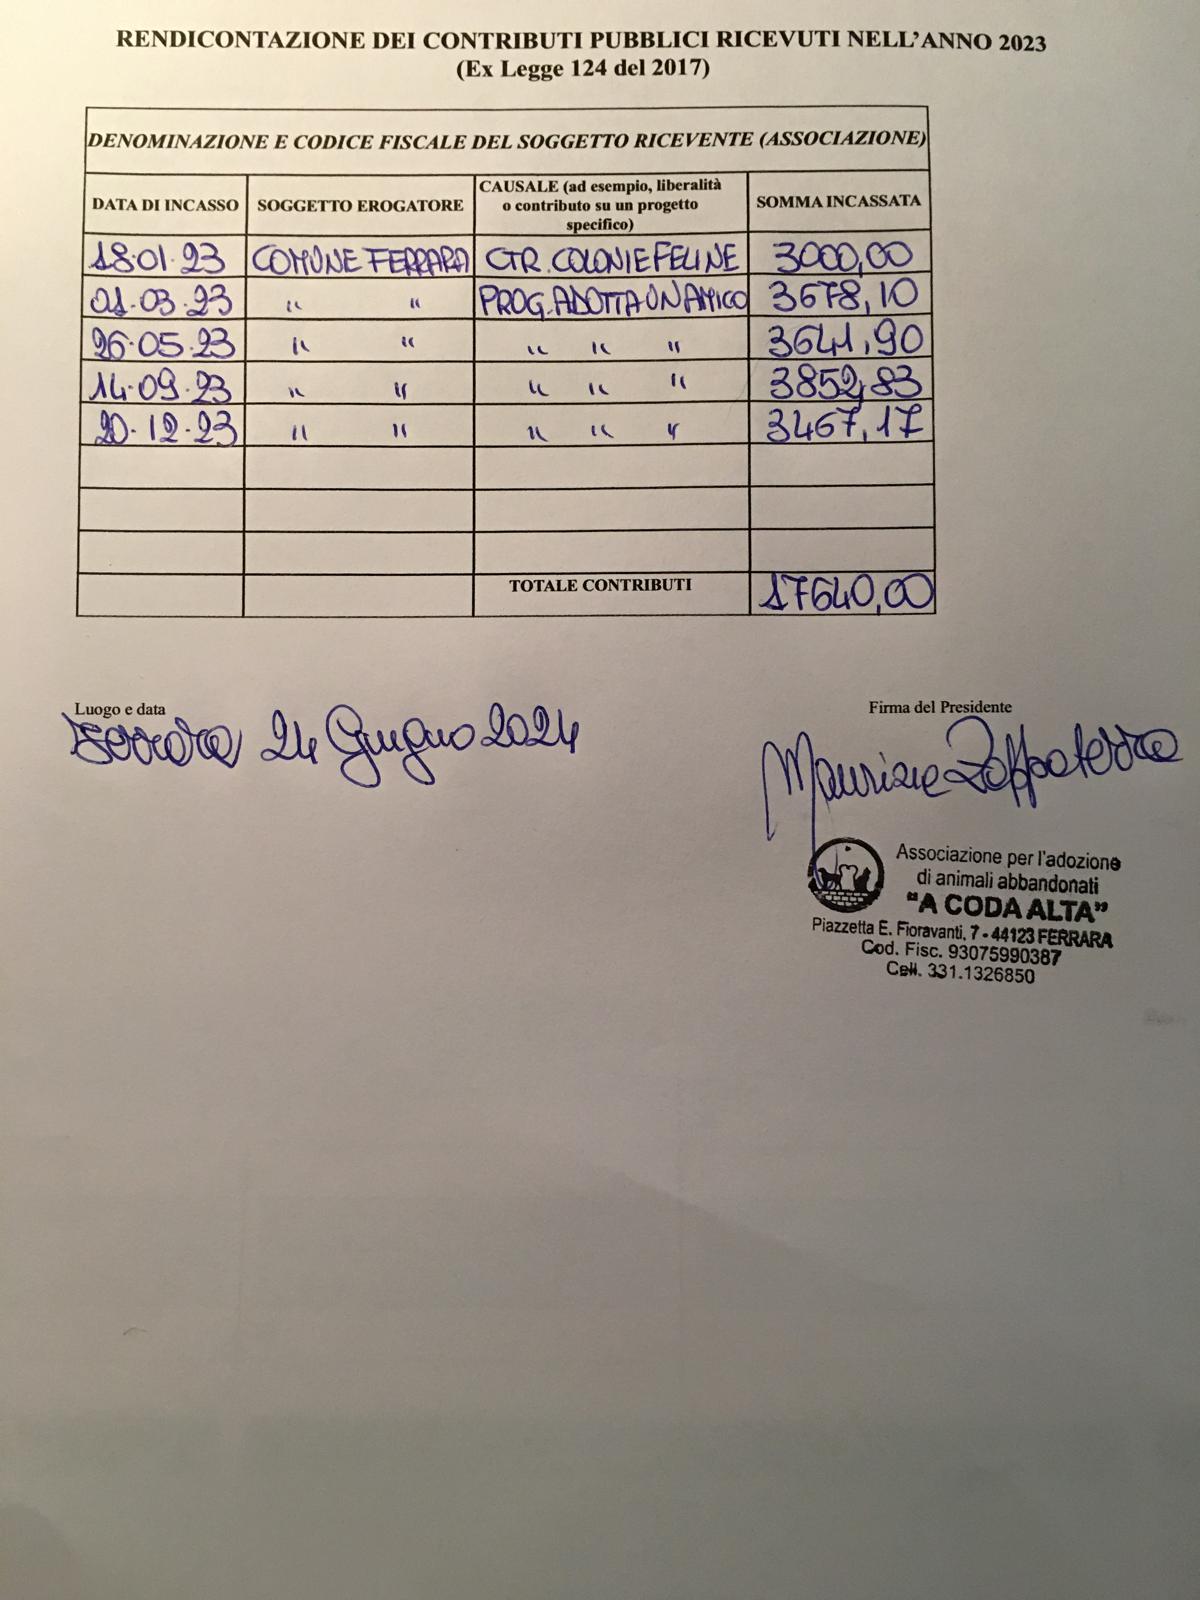 RENDICONTAZIONE DEI CONTRIBUTI PUBBLICI RICEVUTI NELL'ANNO 2023
(Ex Legge 124 del 2017)
DENOMINAZIONE E CODICE FISCALE DEL SOGGETTO RICEVENTE (ASSOCIAZIONE)
DATA DI INCASSO SOGGETTO EROGATORE CAUSALE (ad esempio, liberalità o contributo su un progetto specifico) SOMMA INCASSATA
18.01.23 COMUNE FERRARA CTR. COLONIE FELINE 3000,00
01.03.23 " " PROG. ADOTTA UN AMICO 3678,10
26.05.23 " " " " " 3641,90
14.09.23 " " " " " 3852,83
20.12.23 " " " " " 3467,17
TOTALE CONTRIBUTI 17640,00
Luogo e data
Ferrara 24 Giugno 2024
Firma del Presidente
Maurizio Zappaterra
Associazione per l'adozione
di animali abbandonati
"A CODA ALTA"
Piazzetta E. Fioravanti, 7 - 44123 FERRARA
Cod. Fisc. 93075990387
Cell. 331.1326850